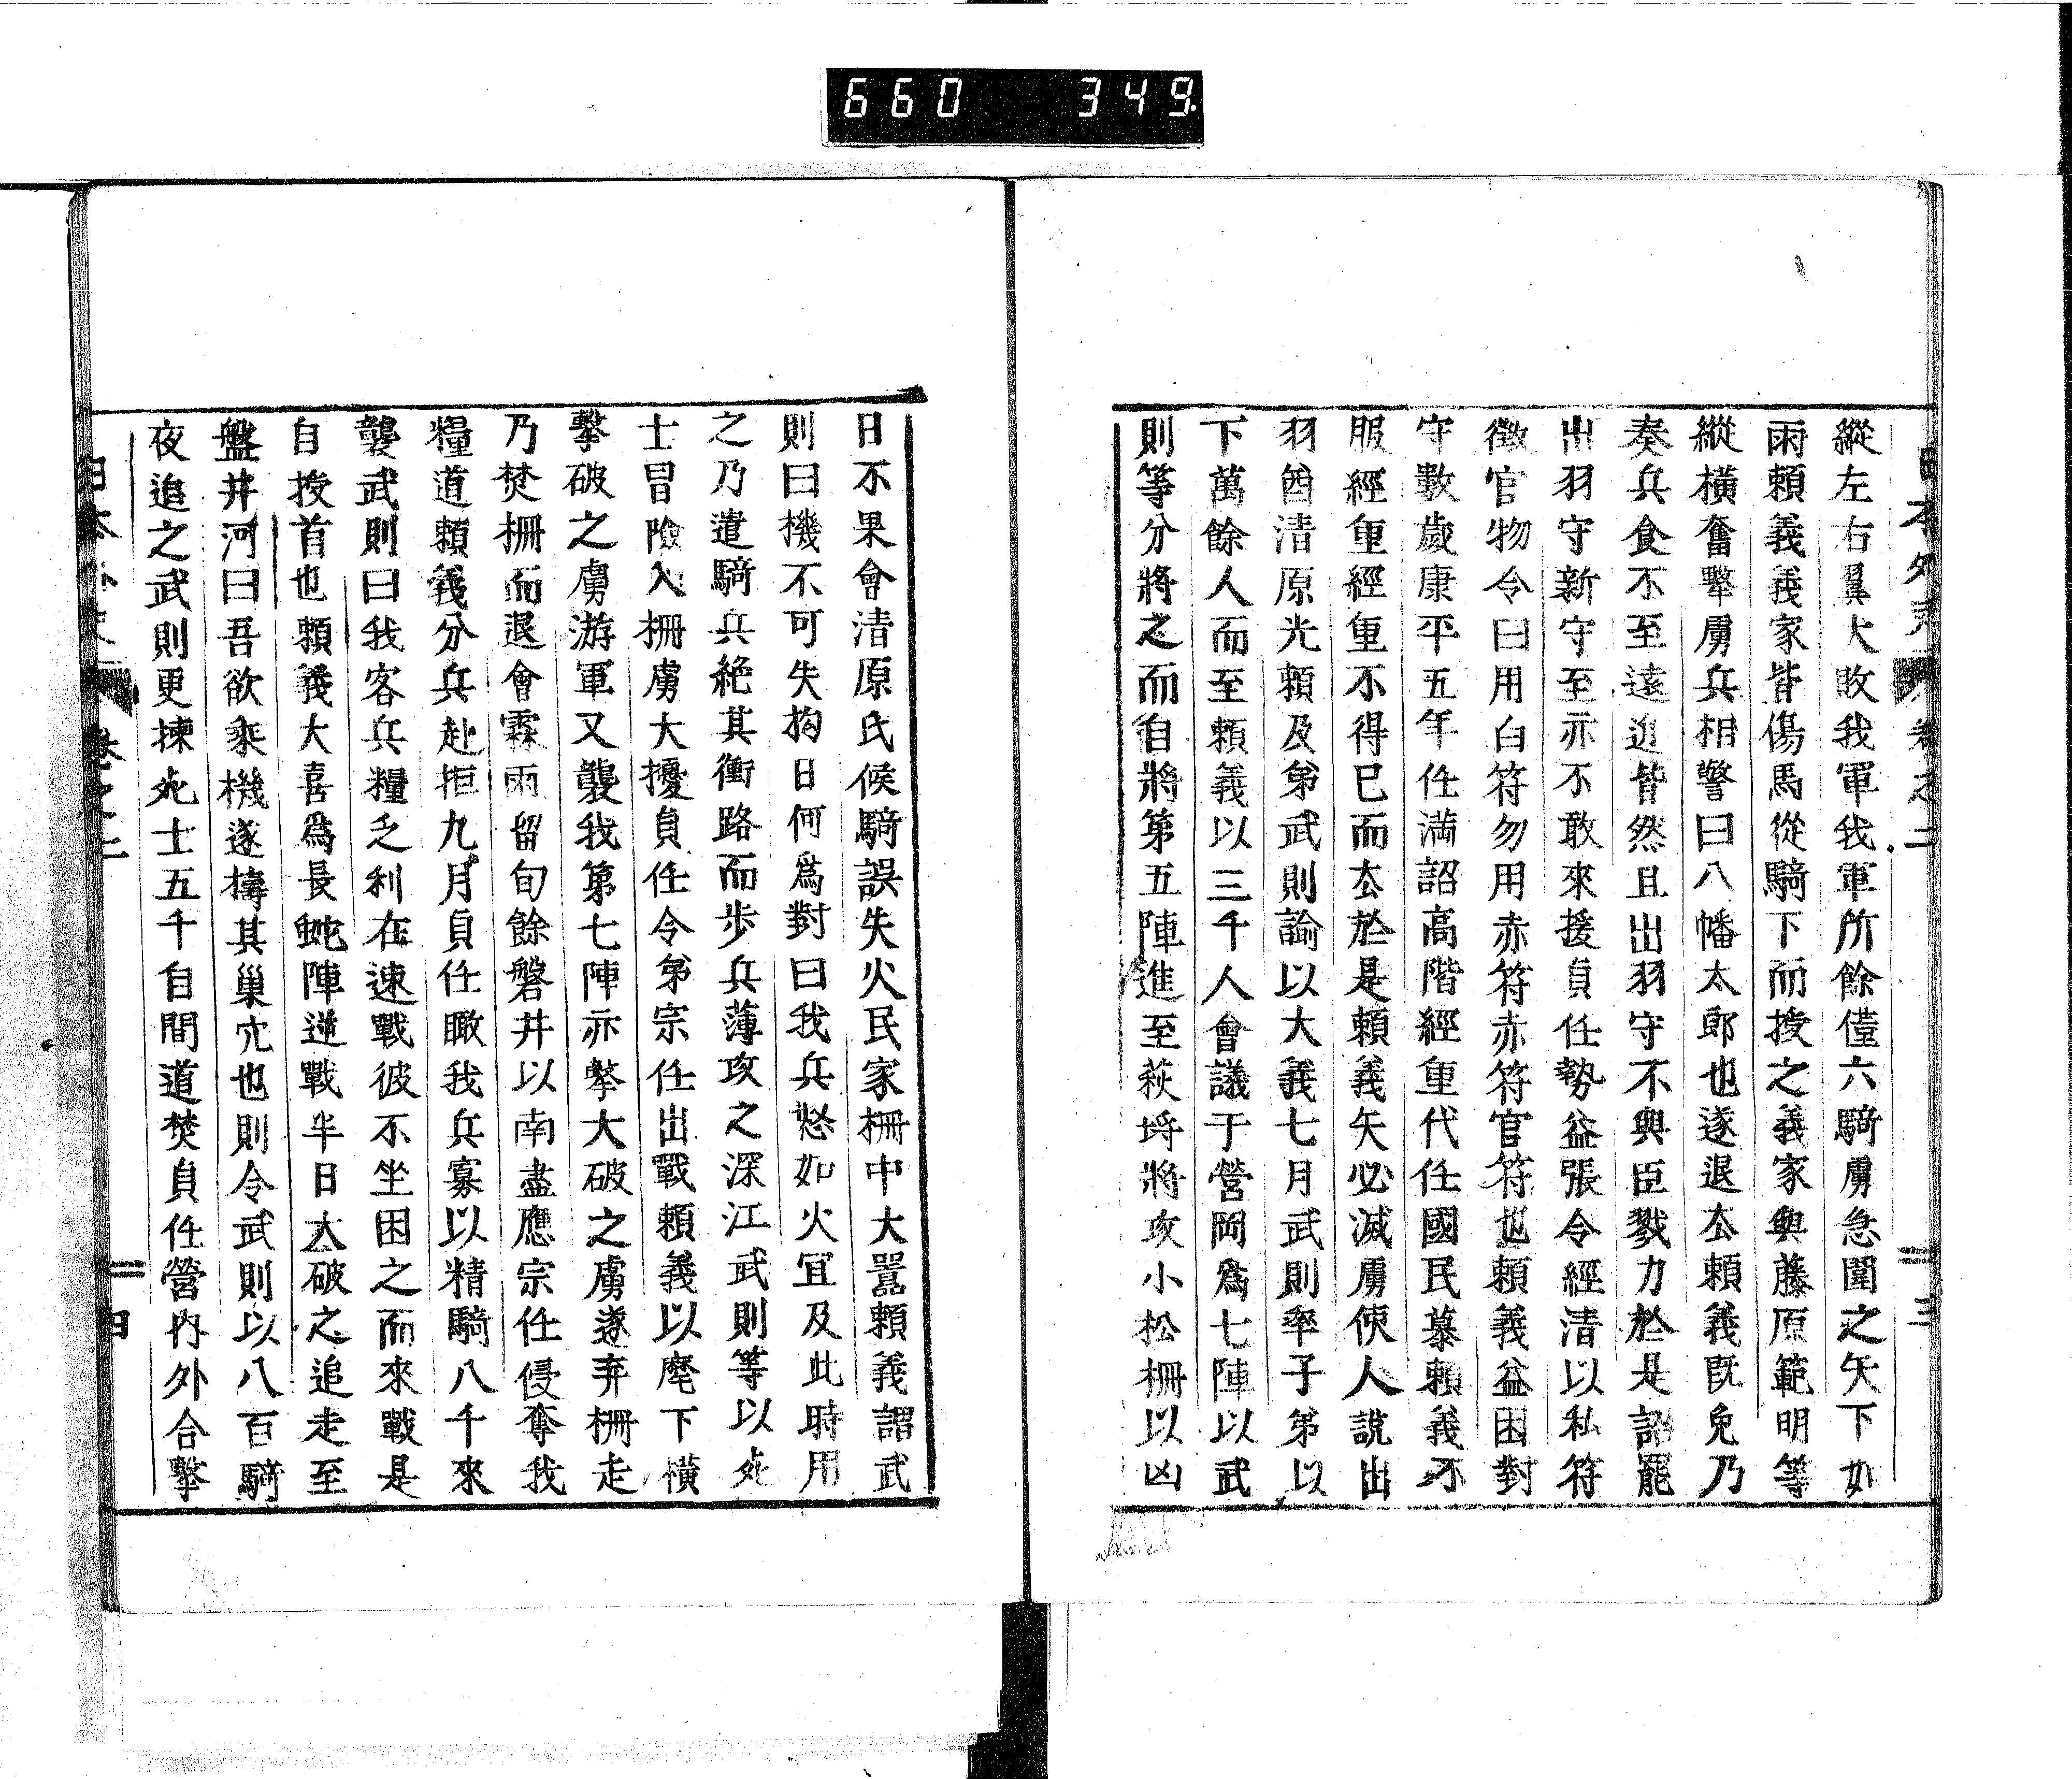 660 349
日本外史 卷之二 三
縱左右翼大敗我軍我軍所餘僅六騎虜急圍之矢下如
雨賴義義家皆傷馬從騎下而授之義家與藤原範明等
縱橫奮擊虜兵相警曰八幡太郎也遂退去賴義既免乃
奏兵食不至遠近皆然且出羽守不與臣戮力於是詔罷
出羽守新守至亦不敢來援貞任勢益張令經清以私符
徵官物令曰用白符勿用赤符赤符官符也賴義益困對
守數歲康平五年任滿詔高階經重代任國民慕賴義不
服經重經重不得已而去於是賴義矢必滅虜使人說出
羽酋清原光賴及弟武則諭以大義七月武則率子弟以
下萬餘人而至賴義以三千人會議于營岡為七陣以武
則等分將之而自將第五陣進至萩埒將攻小松柵以凶
日不果會清原氏候騎誤失火民家柵中大囂賴義謂武
則曰機不可失拘日何爲對曰我兵怒如火宜及此時用
之乃遣騎兵絶其衝路而步兵薄攻之深江武則等以死
士冒險入柵虜大擾貞任令弟宗任出戰賴義以麾下橫
擊破之虜游軍又襲我第七陣亦擊大破之虜遂弃柵走
乃焚柵而退會霖雨留旬餘磐井以南盡應宗任侵奪我
糧道賴義分兵赴拒九月貞任瞰我兵寡以精騎八千來
襲武則曰我客兵糧乏利在速戰彼不坐困之而來戰是
自授首也賴義大喜爲長蛇陣逆戰半日大破之追走至
盤井河曰吾欲乘機遂擣其巢穴也則令武則以八百騎
夜追之武則更揀死士五千自間道焚貞任營内外合擊
日本外史 卷之二 四